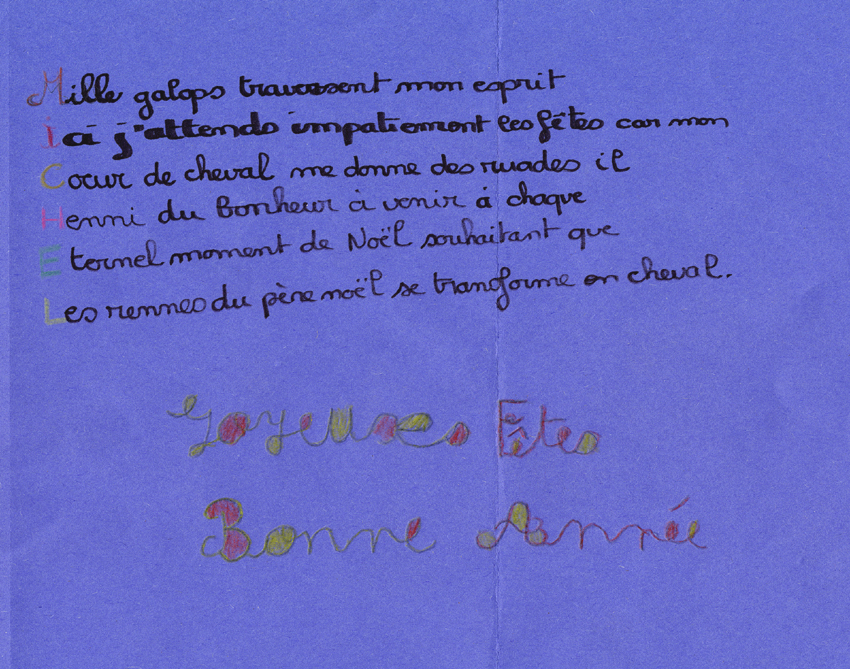 Mille galops traversent mon esprit
Ici j'attends impatiemment les fêtes car mon
Coeur de cheval me donne des ruades il
Henni du Bonheur à venir à chaque
Eternel moment de Noël souhaitant que
Les rennes du père noël se transforme en cheval.
Joyeuses Fêtes
Bonne Année